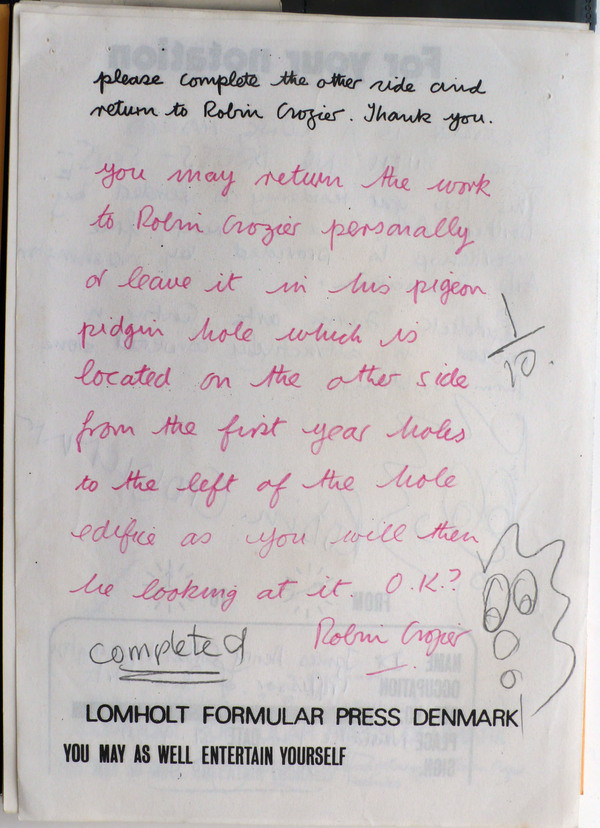 please complete the other side and
return to Robin Crozier. Thank you.
you may return the work
to Robin Crozier personally
or leave it in his pigeon
pidgin hole which is
located on the other side
from the first year holes
to the left of the hole
edifice as you will then
be looking at it O.K.?
Robin Crozier
1/10.
completed
LOMHOLT FORMULAR PRESS DENMARK
YOU MAY AS WELL ENTERTAIN YOURSELF